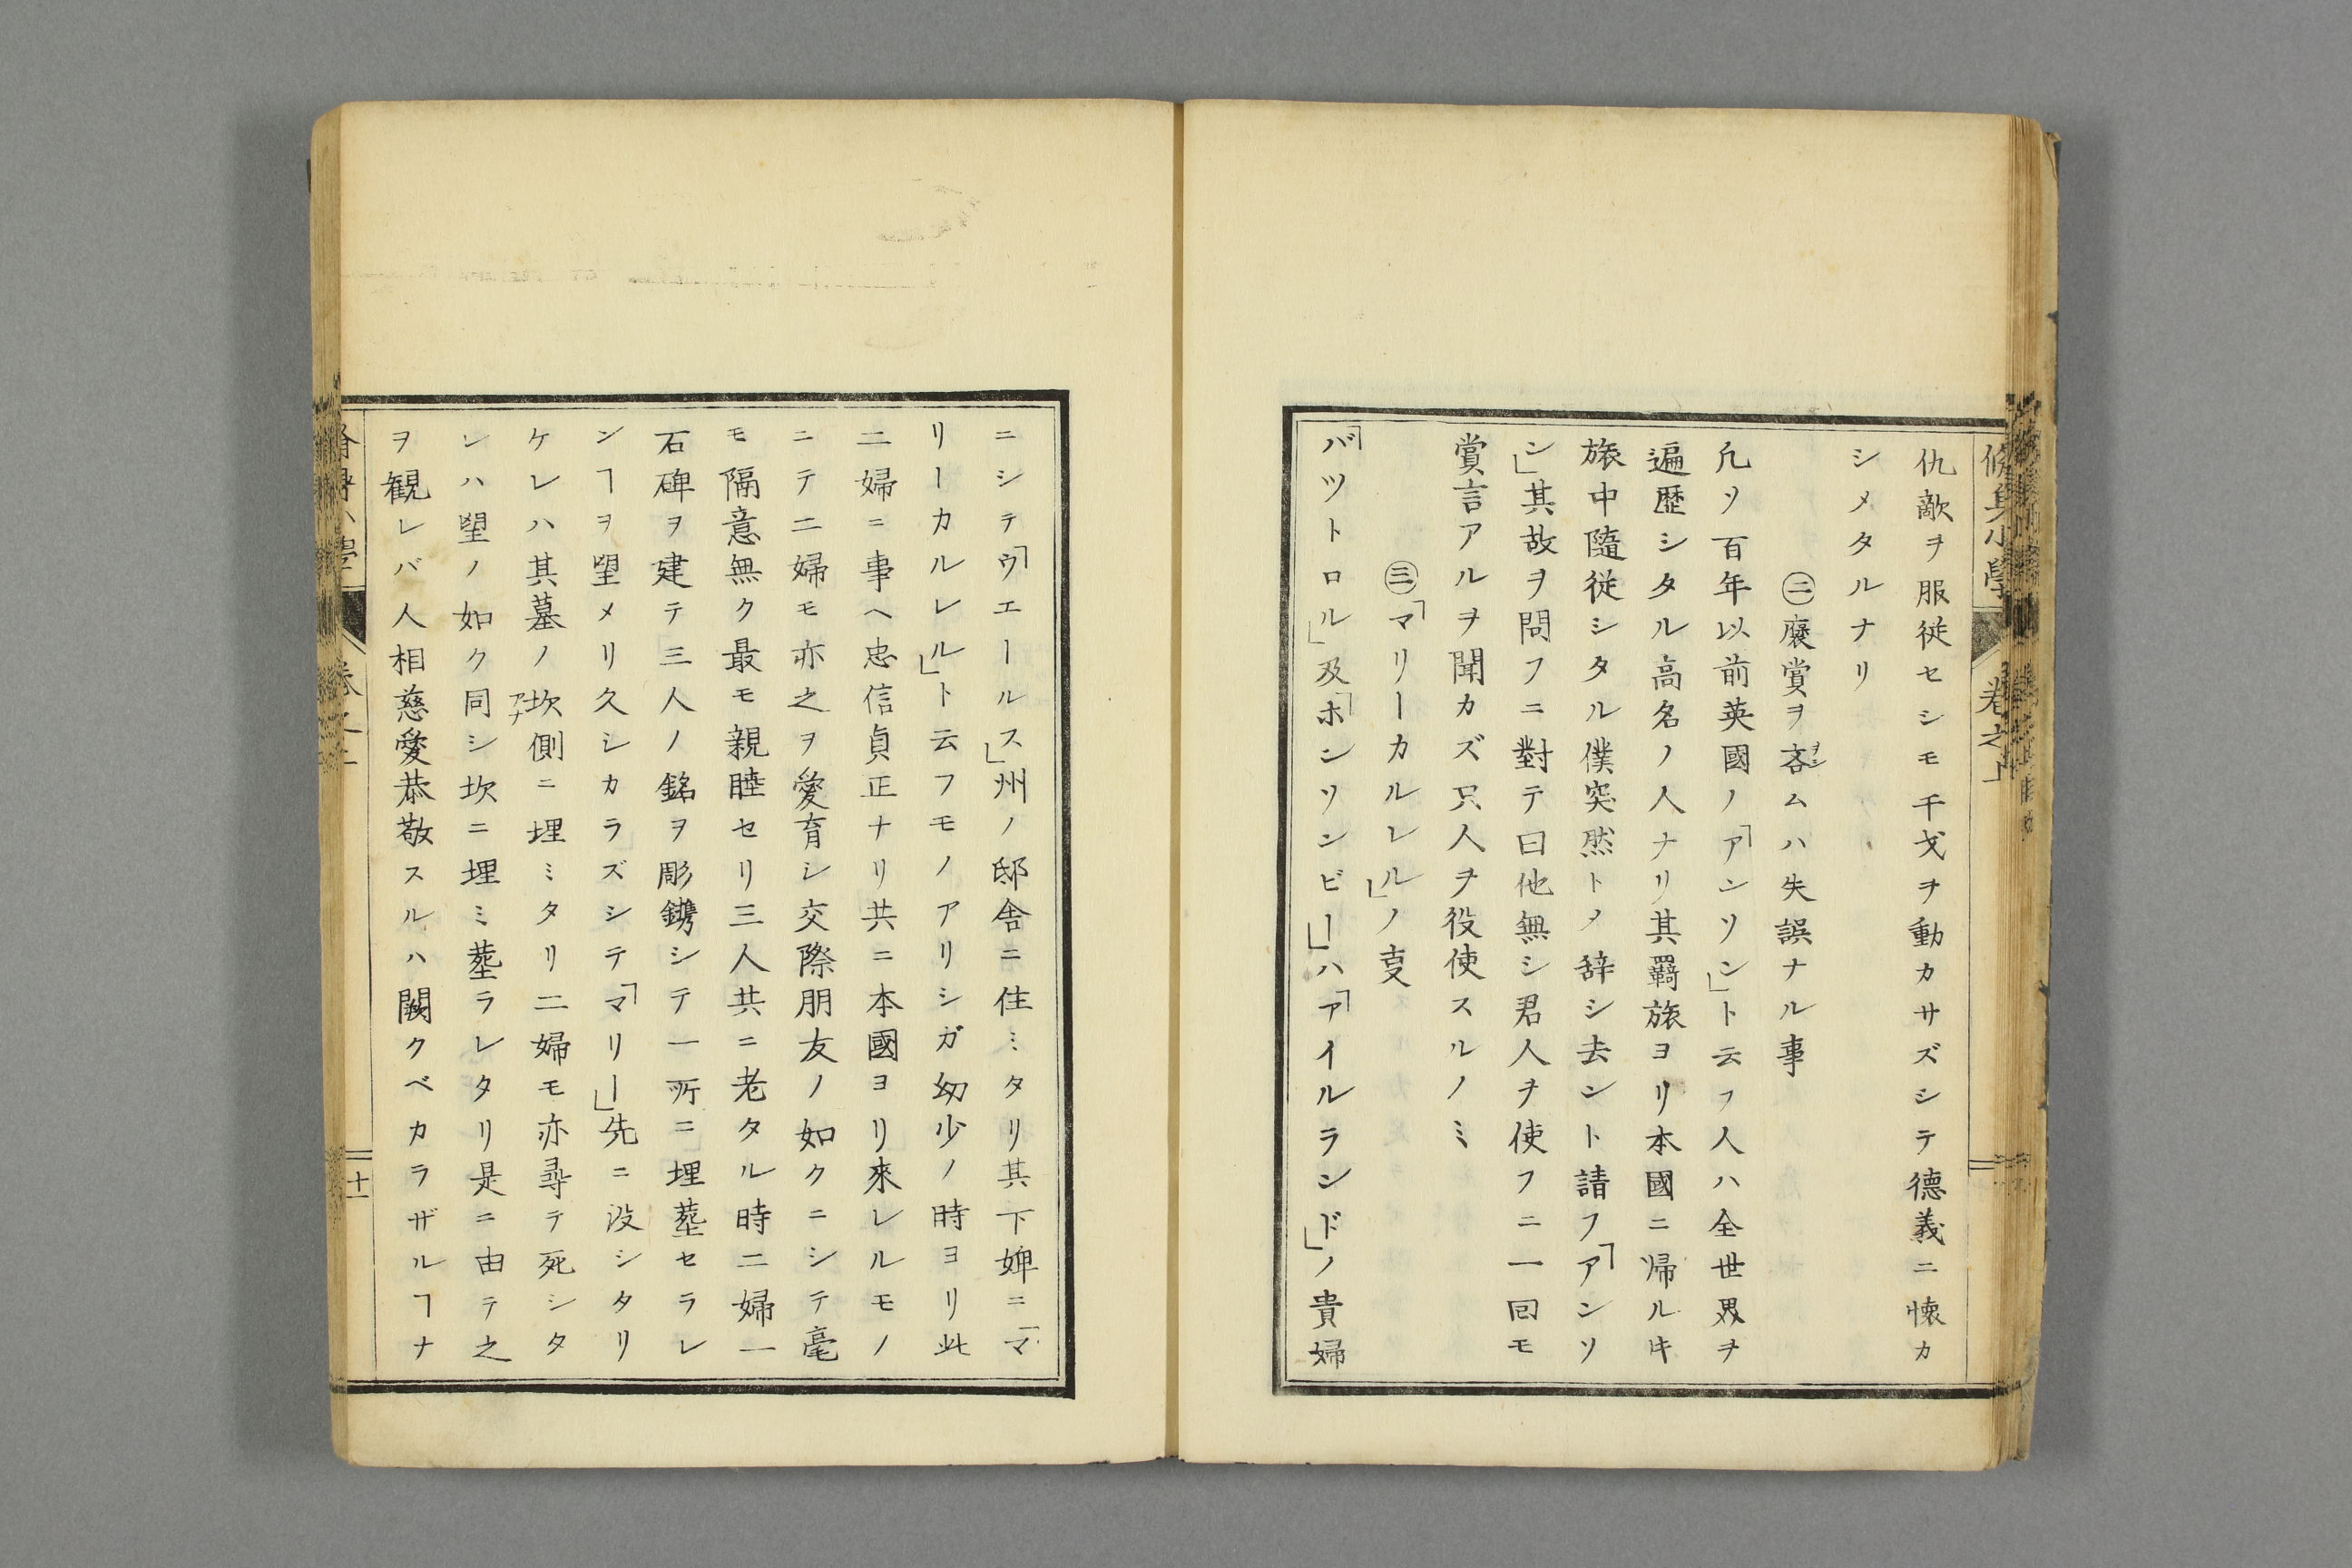 修身小學 卷之上
仇敵ヲ服従セシモ干戈ヲ動カサズシテ德義ニ懐カ
シメタルナリ
㊁褒賞ヲ吝ムハ失誤ナル事
ヲシ
凢ソ百年以前英國ノ「アンソン」ト云フ人ハ全世界ヲ
遍歴シタル高名ノ人ナリ其羇旅ヨリ本國ニ帰ルキ
旅中隨従シタル僕突然トメ辞シ去ント請フ「アンソ
ン」其故ヲ問フニ對テ曰他無シ君人ヲ使フニ一回モ
賞言アルヲ聞カズ只人ヲ役使スルノミ
㊂「マリーカルレル」ノ㕝
「バツトロル」及「ホンソンビー」ハ「アイルランド」ノ貴婦
ニシテ「ウエールス」州ノ邸舎ニ住ミタリ其下婢ニ「マ
リーカルレル」ト云フモノアリシガ幼少ノ時ヨリ此
二婦ニ事ヘ忠信貞正ナリ共ニ本國ヨリ來レルモノ
ニテ二婦モ亦之ヲ愛育シ交際朋友ノ如クニシテ毫
モ隔意無ク最モ親睦セリ三人共ニ老タル時二婦一
石碑ヲ建テ三人ノ銘ヲ彫鐫シテ一所ニ埋葬セラレ
ンヿヲ望メリ久シカラズシテ「マリー」先ニ没シタリ
ケレハ其墓ノ坎側ニ埋ミタリ二婦モ亦尋テ死シタ
アナ
レハ望ノ如ク同シ坎ニ埋ミ葬ラレタリ是ニ由テ之
ヲ観レバ人相慈愛恭敬スルハ闕クベカラザルヿナ
十一